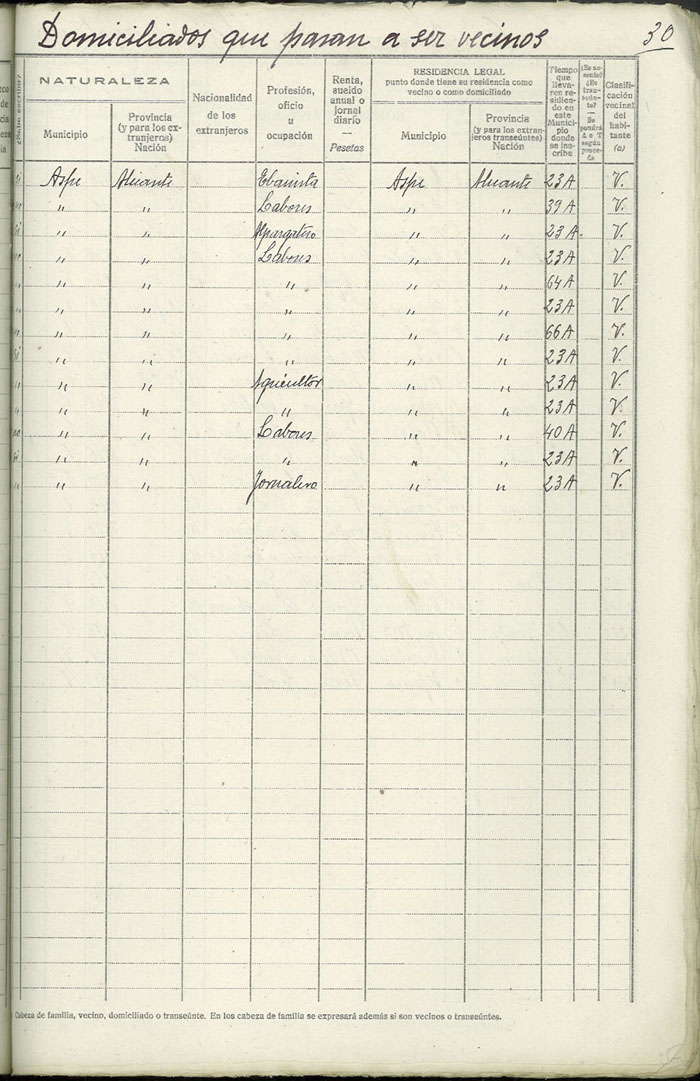 Domiciliados que pasan a ser vecinos
30
NATURALEZA
Municipio
Provincia (y para los extranjeros) Nación
Nacionalidad de los extranjeros
Profesión, oficio u ocupación
Renta, sueldo anual o jornal diario — Pesetas
RESIDENCIA LEGAL
punto donde tiene su residencia como vecino o como domiciliado
Municipio
Provincia (y para los extranjeros transeúntes) Nación
Tiempo que llevaren residiendo en este Municipio donde se inscribe
Clasificación vecinal del habitante (a)
Aspe Alicante Ebanista Aspe Alicante 23 A V.
" " Labores " " 39 A V.
" " Alpargatero " " 23 A. V.
" " Labores " " 23 A V.
" " " " " 64 A V.
" " " " " 23 A V.
" " " " " 66 A V.
" " " " " 23 A V.
" " Agricultor " " 23 A V.
" " " " " 23 A V.
no " " Labores " " 40 A V.
si " " " " " 23 A V.
" " " Jornalero " " 23 A V.
Cabeza de familia, vecino, domiciliado o transeúnte. En los cabeza de familia se expresará además si son vecinos o transeúntes.